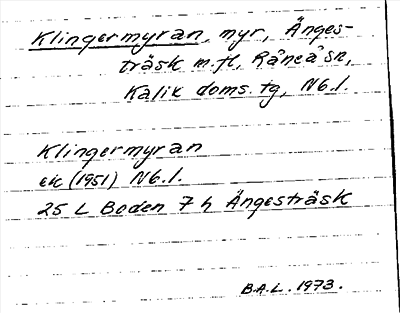 Klingermyran, myr, Änges-
träsk m.fl, Råneå sn,
Kalix doms. tg, Nb.l.
Klingermyran
ek (1951) Nb.l.
25 L Boden 7 h Ängesträsk
B.A.L. 1973.